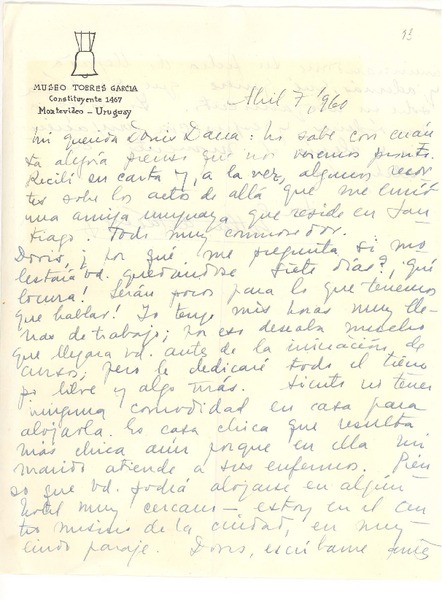 1ª
MUSEO TORRES GARCIA
Constituyente 1467
Montevideo - Uruguay
Abril 7, 1960
Mi querida Doris Dana: no sabe con cuán
ta alegría pienso que nos veremos pronto.
Recibí su carta y, a la vez, algunos recor
tes sobre los actos de allá que me envió
una amiga uruguaya que reside en San
tiago. Todo muy conmovedor.
Doris, ¿por qué me pregunta si mo
lestaría Vd. quedándose siete días? ¡Qué
locura! Serán pocos para lo que tenemos
que hablar! Yo tengo mis horas muy lle
nas de trabajo; por eso deseaba mucho
que llegara Vd. antes de la iniciación de
cursos; pero le dedicaré todo el tiem
po libre y algo más. Siento no tener
ninguna comodidad en casa para
alojarla. Es casa chica que resulta
más chica aún porque en ella mi
marido atiende a sus enfermos. Pien
so que Vd. podrá alojarse en algún
hotel muy cercano - estoy en el cen
tro mismo de la ciudad, en muy
lindo paraje. Doris, escríbame antes